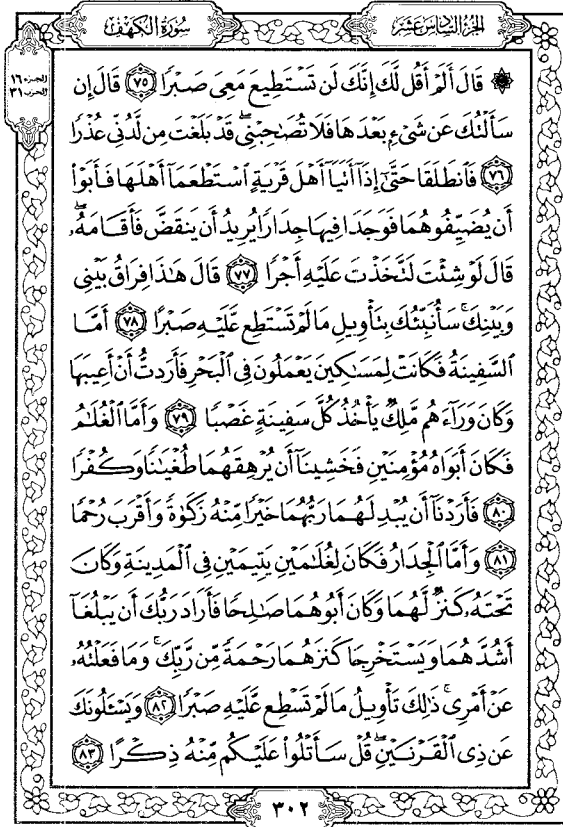 الجزء السادس عشر
سورة الكهف
الجزء ١٦
الحزب ٣١
۞ قَالَ أَلَمْ أَقُل لَّكَ إِنَّكَ لَن تَسْتَطِيعَ مَعِىَ صَبْرًا ٧٥ قَالَ إِن
سَأَلْتُكَ عَن شَىْءٍۭ بَعْدَهَا فَلَا تُصَٰحِبْنِىۖ قَدْ بَلَغْتَ مِن لَّدُنِّى عُذْرًا
٧٦ فَٱنطَلَقَا حَتَّىٰٓ إِذَآ أَتَيَآ أَهْلَ قَرْيَةٍ ٱسْتَطْعَمَآ أَهْلَهَا فَأَبَوْا۟
أَن يُضَيِّفُوهُمَا فَوَجَدَا فِيهَا جِدَارًا يُرِيدُ أَن يَنقَضَّ فَأَقَامَهُۥۖ
قَالَ لَوْ شِئْتَ لَتَّخَذْتَ عَلَيْهِ أَجْرًا ٧٧ قَالَ هَٰذَا فِرَاقُ بَيْنِى
وَبَيْنِكَۚ سَأُنَبِّئُكَ بِتَأْوِيلِ مَا لَمْ تَسْتَطِع عَّلَيْهِ صَبْرًا ٧٨ أَمَّا
ٱلسَّفِينَةُ فَكَانَتْ لِمَسَٰكِينَ يَعْمَلُونَ فِى ٱلْبَحْرِ فَأَرَدتُّ أَنْ أَعِيبَهَا
وَكَانَ وَرَآءَهُم مَّلِكٌ يَأْخُذُ كُلَّ سَفِينَةٍ غَصْبًا ٧٩ وَأَمَّا ٱلْغُلَٰمُ
فَكَانَ أَبَوَاهُ مُؤْمِنَيْنِ فَخَشِينَآ أَن يُرْهِقَهُمَا طُغْيَٰنًا وَكُفْرًا
٨٠ فَأَرَدْنَآ أَن يُبْدِلَهُمَا رَبُّهُمَا خَيْرًا مِّنْهُ زَكَوٰةً وَأَقْرَبَ رُحْمًا
٨١ وَأَمَّا ٱلْجِدَارُ فَكَانَ لِغُلَٰمَيْنِ يَتِيمَيْنِ فِى ٱلْمَدِينَةِ وَكَانَ
تَحْتَهُۥ كَنزٌ لَّهُمَا وَكَانَ أَبُوهُمَا صَٰلِحًا فَأَرَادَ رَبُّكَ أَن يَبْلُغَآ
أَشُدَّهُمَا وَيَسْتَخْرِجَا كَنزَهُمَا رَحْمَةً مِّن رَّبِّكَۚ وَمَا فَعَلْتُهُۥ
عَنْ أَمْرِىۚ ذَٰلِكَ تَأْوِيلُ مَا لَمْ تَسْطِع عَّلَيْهِ صَبْرًا ٨٢ وَيَسْـَٔلُونَكَ
عَن ذِى ٱلْقَرْنَيْنِۖ قُلْ سَأَتْلُوا۟ عَلَيْكُم مِّنْهُ ذِكْرًا ٨٣
٣٠٢